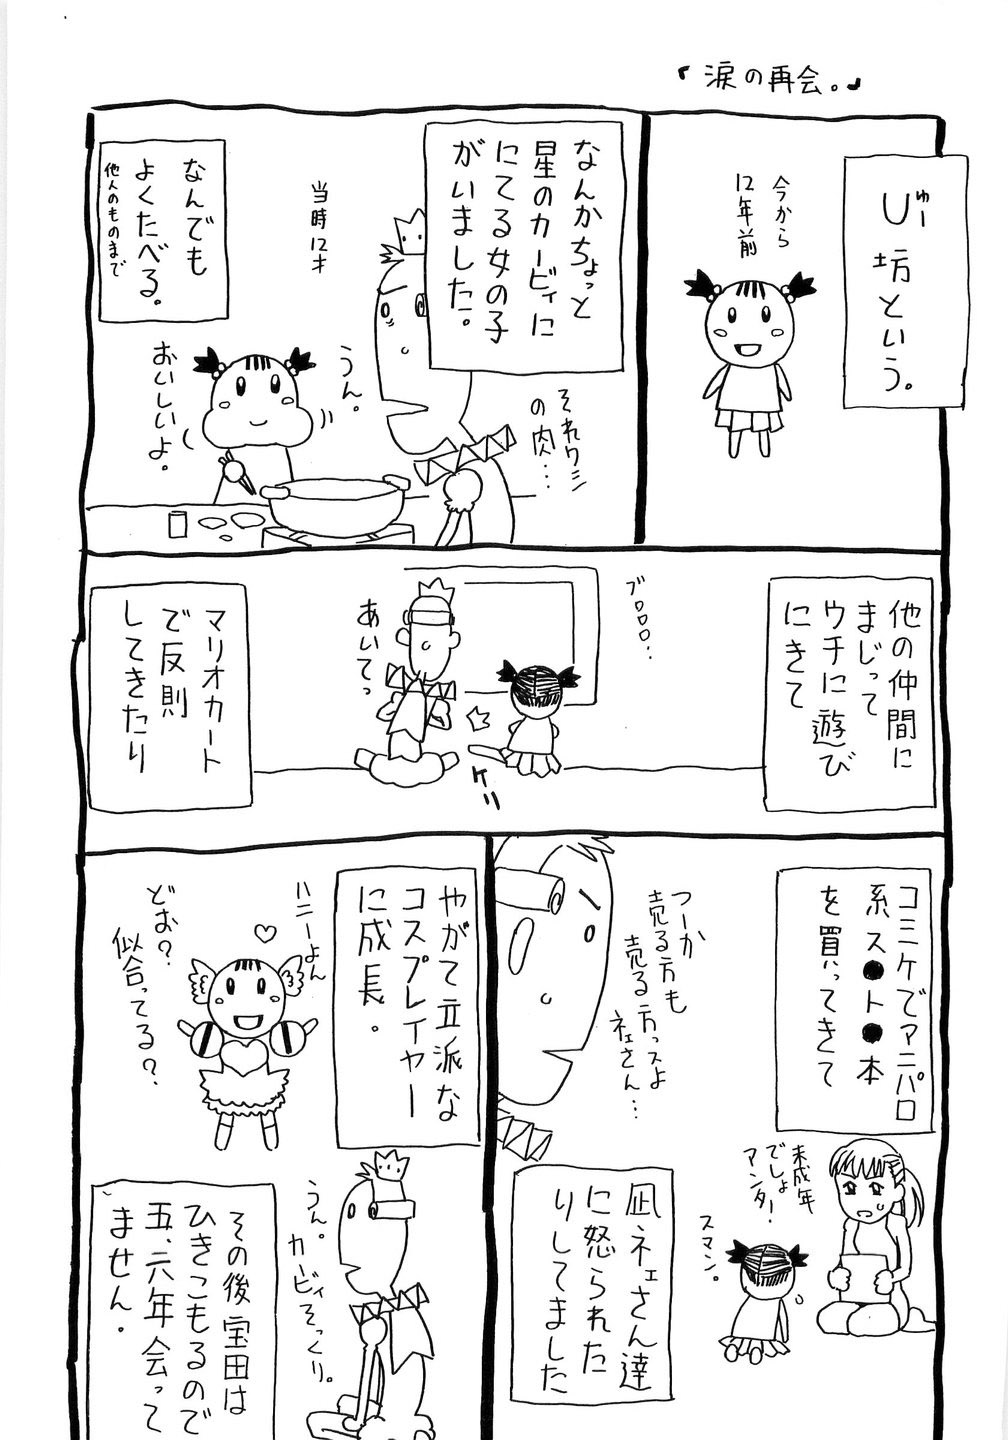 『涙の再会。』
U坊という。
ゆー
今から
12年前
なんかちょっと
星のカービィに
にてる女の子
がいました。
それワシ
の肉…
うん。
当時12才
おいしいよ。
なんでも
よくたべる。
他人のものまで
他の仲間に
まじって
ウチに遊び
にきて
ブロロロ…
ケリ
あいてっ
マリオカート
で反則
してきたり
コミケでアニパロ
系ス●ト●本
を買ってきて
つーか
売る方も
売る方っスよ
ネェさん…
未成年
でしょ
アンター!
スマン。
凪ネェさん達
に怒られた
りしてました
やがて立派な
コスプレイヤー
に成長。
ハニーよん
どお?
似合ってる?
うん。
カービィそっくり。
その後宝田は
ひきこもるので
五、六年会って
ません.